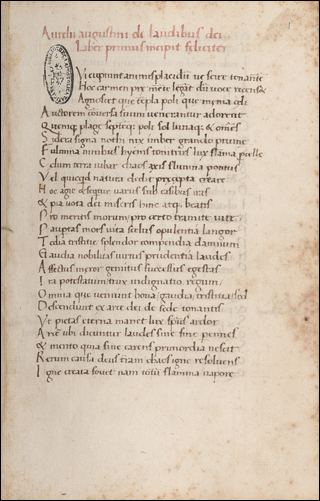 Aurelii augustini de laudibus dei
Liber primus incipit feliciter
Qui cupiunt animis placidũ ue scire tonantẽ
Hoc carmen pre mẽte legãt dũ uoce recensẽt
Agnoscet quẽ tẽpla poli que menia celi
Auctorem conuersa suum uenerantur adorent
Quinq; plage septẽq; poli sol lunaq; & omẽs
Sidera signa nothi nix imber grando pruine
Fulmina nimbus hyems tonitrus lux flãma pcelle
Celum terra iubar chaos axis flumina pontus
Vel quicquid natura dedit precepta creare
Hoc agit & sequit uariis sub casibus iras
& pia uota dei miseris hinc atq; beatis
Pro meritis morum pro certo tramite uite
Paupertas mors uita salus opulentia langor
Tedia tristitie splendor compendia damnum
Gaudia nobilitas uirtus prudentia laudes
Affectus meror gemitus successus egestas
Ira potestatum trux indignatio regum
Omnia que ueniunt bona gaudia tristia
Descendunt ex arce dei de sede tonantis
Vt pietas eterna manet lux sp̃us ardor
Arce ubi dicuntur laudes sine fine perhennes
& merito quia fine carens primordia nescit
Rerum causa deus flam chaos igne resoluens
Igne creata fouet nam totũ flamma uapore